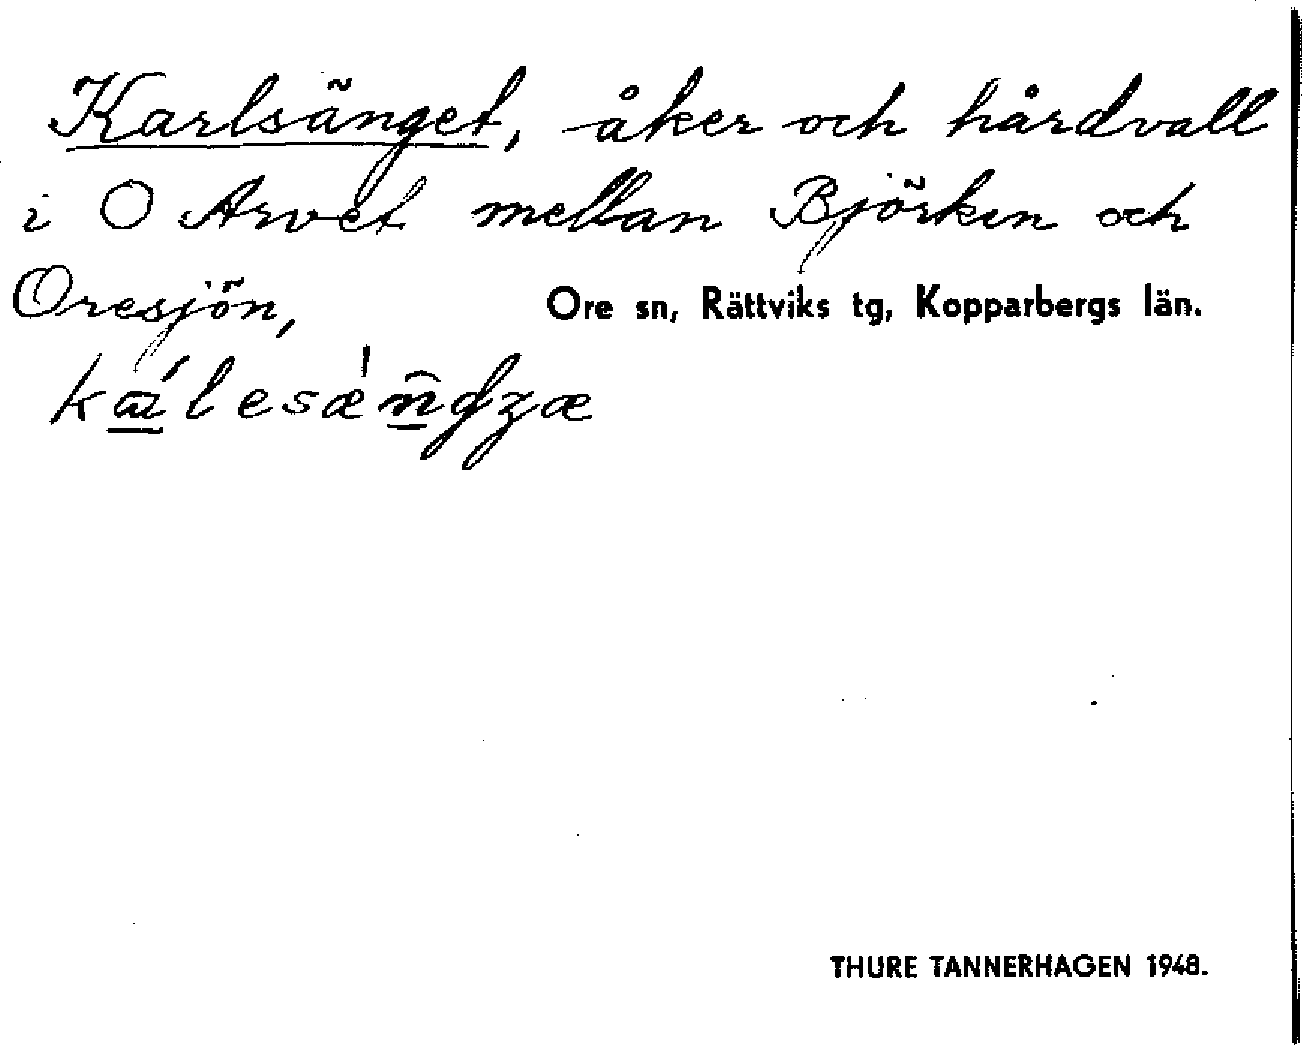 Karlsänget, åker och hårdvall
i O Arvet mellan Björken och
Oresjön, Ore sn, Rättviks tg, Kopparbergs län.
THURE TANNERHAGEN 1948.